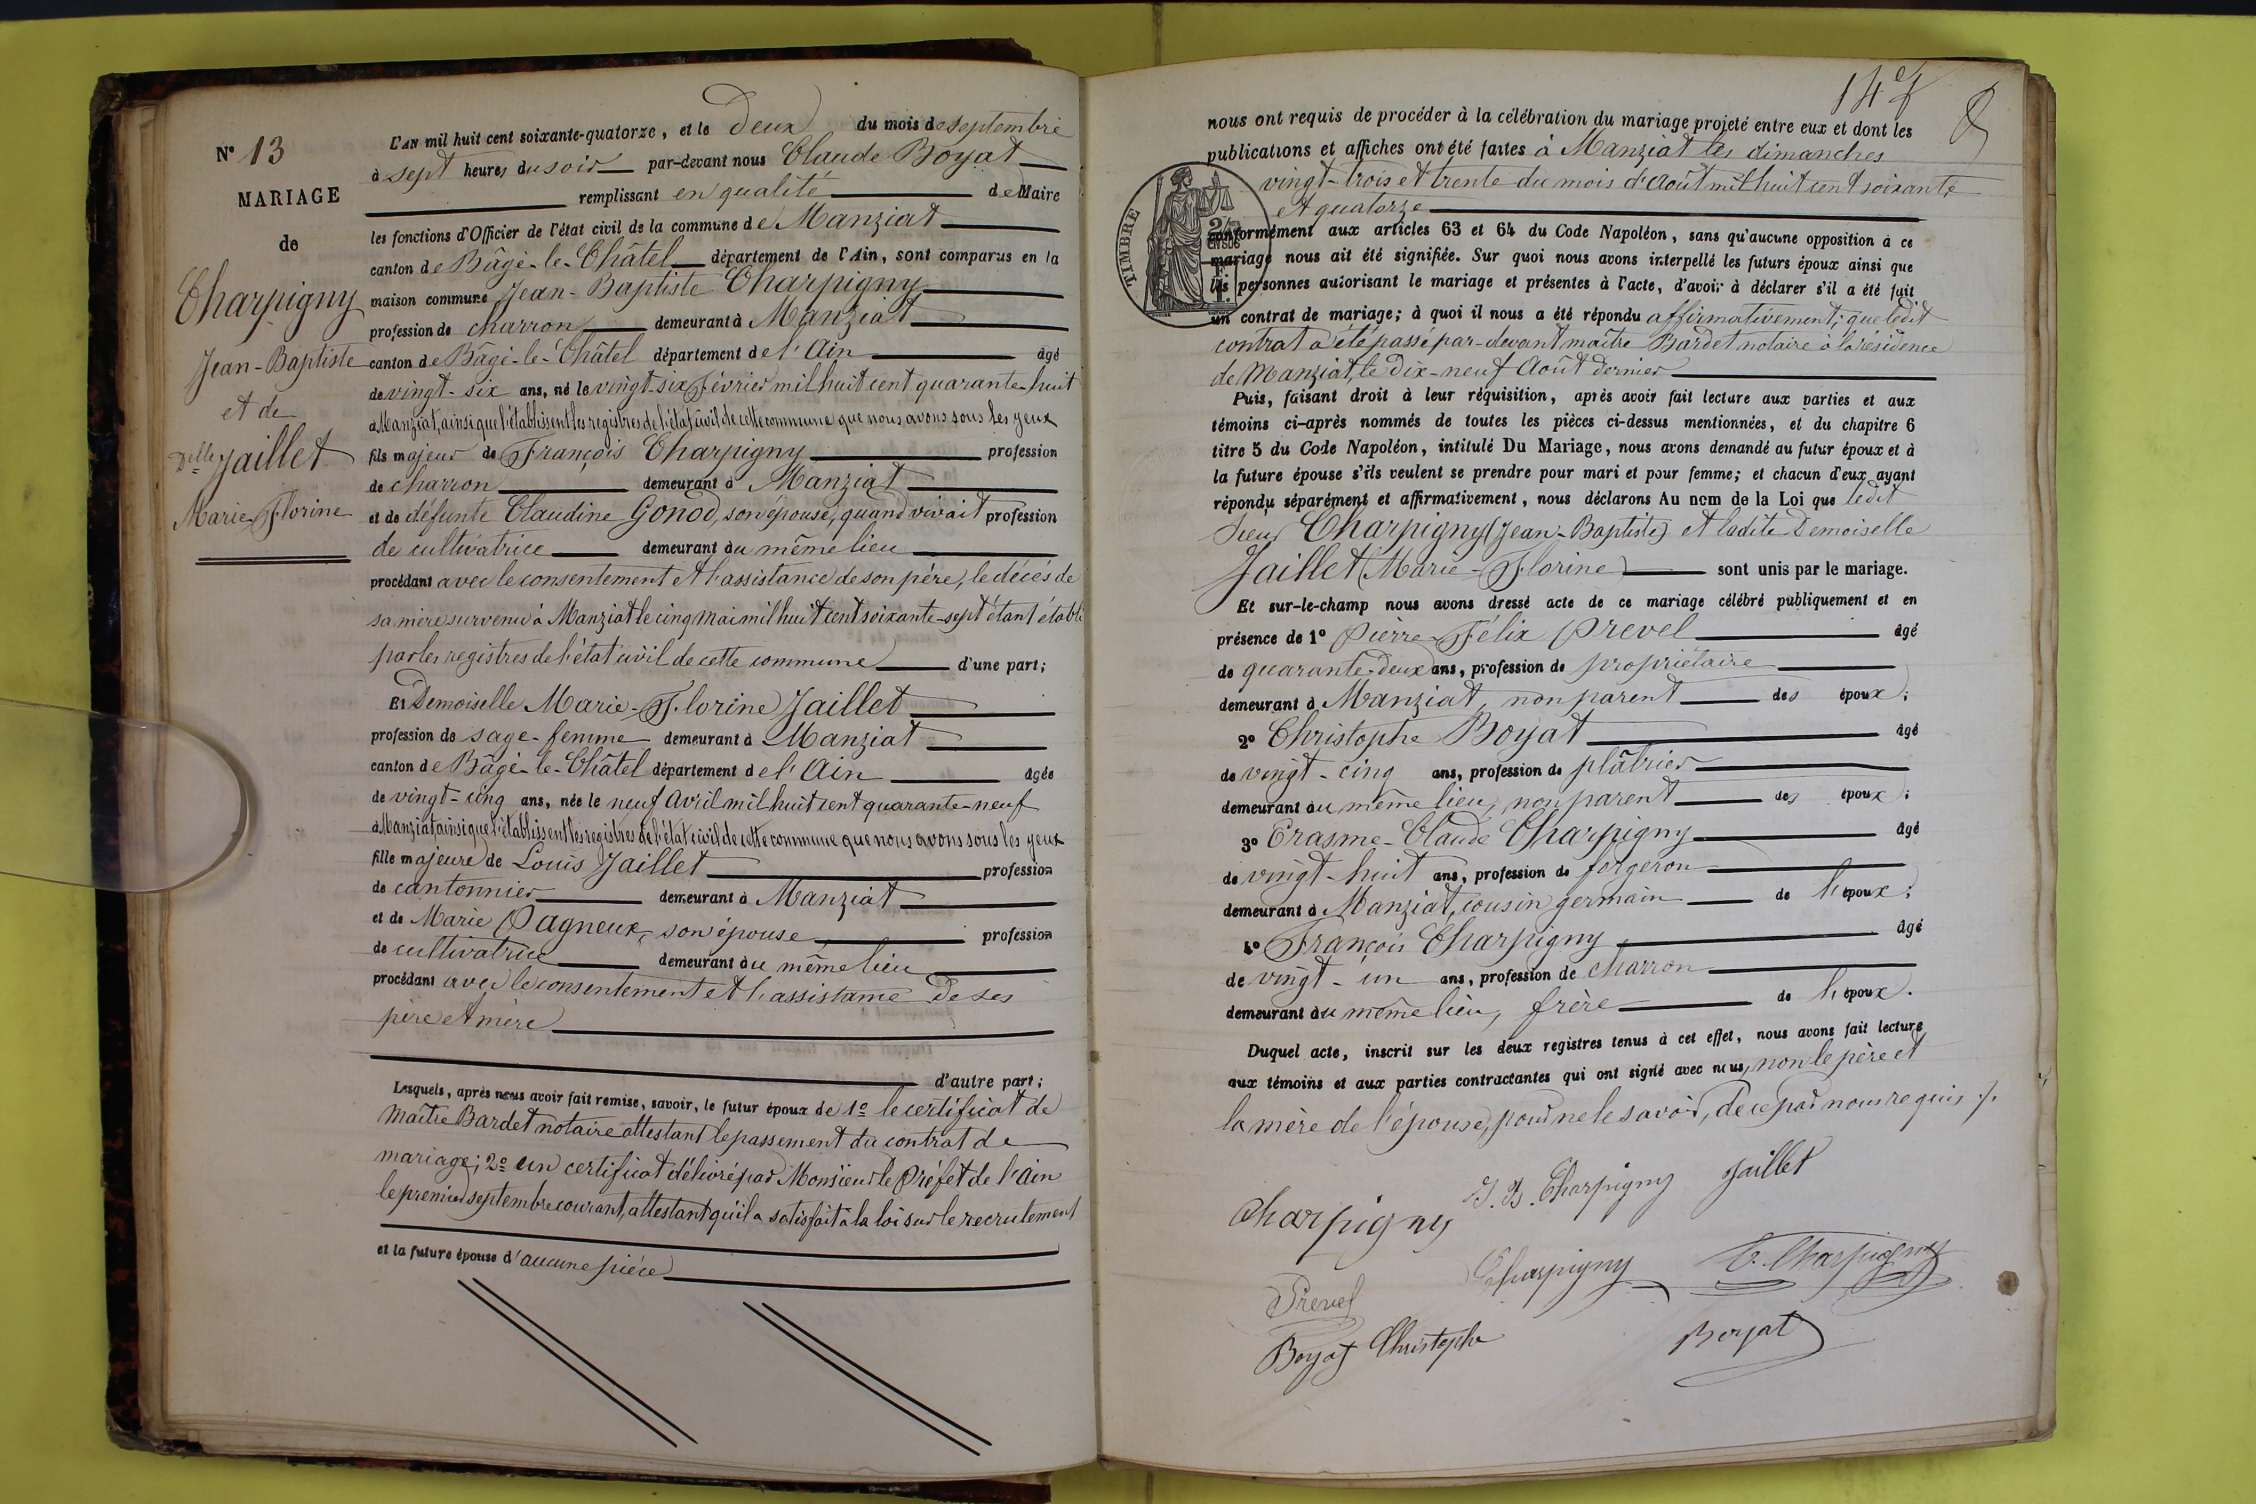 N° 13
MARIAGE
de
Charpigny
Jean-Baptiste
et de
Delle Jaillet
Marie-Florine
L'AN mil huit cent soixante-quatorze, et le deux du mois de septembre
à sept heures du soir par-devant nous Claude Boyat
remplissant en qualité de Maire
les fonctions d'Officier de l'état civil de la commune de Manziat
canton de Bâgé-le-Châtel département de l'Ain, sont comparus en la
maison commune Jean-Baptiste Charpigny
profession de charron demeurant à Manziat
canton de Bâgé-le-Châtel département de l'Ain âgé
de vingt-six ans, né le vingt-six Février mil huit cent quarante-huit
à Manziat, ainsi que l'établissent les registres de l'état civil de cette commune que nous avons sous les yeux
fils majeur de François Charpigny profession
de charron demeurant à Manziat
et de défunte Claudine Gonod, son épouse, quand vivait profession
de cultivatrice demeurant au même lieu
procédant avec le consentement et l'assistance de son père, le décès de
sa mère survenu à Manziat le cinq mai mil huit cent soixante-sept étant établi
par les registres de l'état civil de cette commune d'une part;
Et Demoiselle Marie-Florine Jaillet
profession de sage-femme demeurant à Manziat
canton de Bâgé-le-Châtel département de l'Ain âgée
de vingt-cinq ans, née le neuf Avril mil huit cent quarante-neuf
à Manziat, ainsi que l'établissent les registres de l'état civil de cette commune que nous avons sous les yeux
fille majeure de Louis Jaillet profession
de cantonnier demeurant à Manziat
et de Marie Pagneux, son épouse, profession
de cultivatrice demeurant au même lieu
procédant avec le consentement et l'assistance de ses
père et mère
d'autre part;
Lesquels, après nous avoir fait remise, savoir, le futur époux de 1° le certificat de
Maître Bardet notaire attestant le passement du contrat de
mariage; 2° un certificat délivré par Monsieur le Préfet de l'Ain
le premier septembre courant, attestant qu'il a satisfait à la loi sur le recrutement
et la future épouse d'aucune pièce
14e
nous ont requis de procéder à la célébration du mariage projeté entre eux et dont les
publications et affiches ont été faites à Manziat les dimanches
vingt-trois et trente du mois d'Août mil huit cent soixante
et quatorze
TIMBRE
conformément aux articles 63 et 64 du Code Napoléon, sans qu'aucune opposition à ce
mariage nous ait été signifiée. Sur quoi nous avons interpellé les futurs époux ainsi que
les personnes autorisant le mariage et présentes à l'acte, d'avoir à déclarer s'il a été fait
un contrat de mariage; à quoi il nous a été répondu affirmativement; que ledit
contrat a été passé par-devant maître Bardet notaire à la résidence
de Manziat, le Dix-neuf Août dernier
Puis, faisant droit à leur réquisition, après avoir fait lecture aux parties et aux
témoins ci-après nommés de toutes les pièces ci-dessus mentionnées, et du chapitre 6
titre 5 du Code Napoléon, intitulé Du Mariage, nous avons demandé au futur époux et à
la future épouse s'ils veulent se prendre pour mari et pour femme; et chacun d'eux ayant
répondu séparément et affirmativement, nous déclarons Au nom de la Loi que ledit
Sieur Charpigny (Jean-Baptiste) et ladite Demoiselle
Jaillet (Marie-Florine) sont unis par le mariage.
Et sur-le-champ nous avons dressé acte de ce mariage célébré publiquement et en
présence de 1° Pierre-Félix Prevel âgé
de quarante-deux ans, profession de propriétaire
demeurant à Manziat, non parent des époux;
2° Christophe Boyat âgé
de vingt-cinq ans, profession de plâtrier
demeurant au même lieu, non parent des époux;
3° Erasme-Claude Charpigny âgé
de vingt-huit ans, profession de forgeron
demeurant à Manziat, cousin germain de l'époux;
4° François Charpigny âgé
de vingt-un ans, profession de charron
demeurant au même lieu, frère de l'époux.
Duquel acte, inscrit sur les deux registres tenus à cet effet, nous avons fait lecture
aux témoins et aux parties contractantes qui ont signé avec nous, non le père et
la mère de l'épouse, pour ne le savoir, de ce par nous requis ./.
J. B. Charpigny Jaillet
Charpigny
Charpigny C. Charpigny
Prevel
Boyat Christophe Boyat